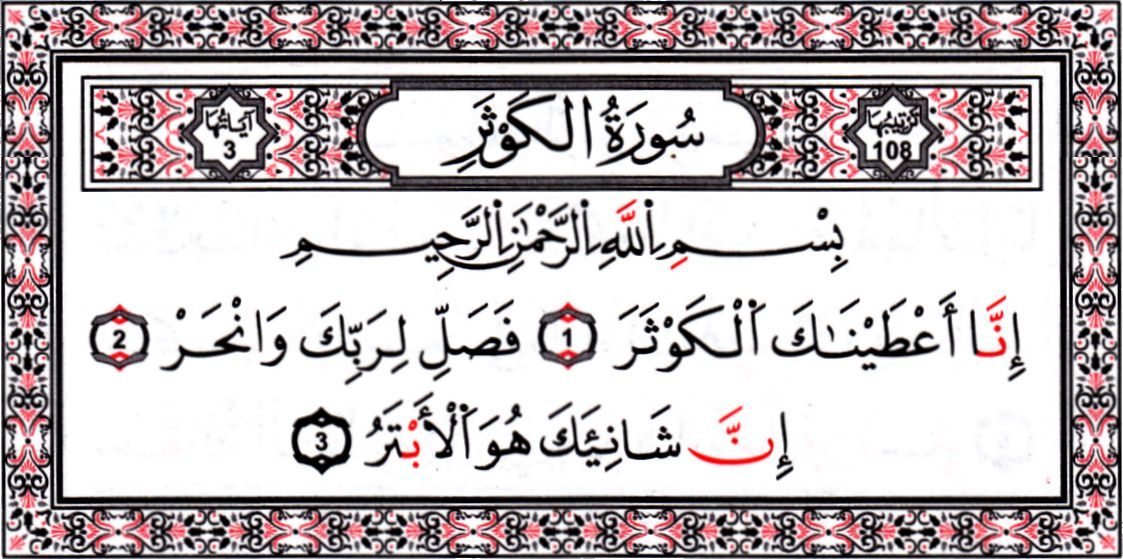 ترتيبها 108 سُورَةُ الكَوْثَرِ آياتها 3
بِسْمِ اللَّهِ الرَّحْمَٰنِ الرَّحِيمِ
إِنَّا أَعْطَيْنَاكَ الْكَوْثَرَ 1 فَصَلِّ لِرَبِّكَ وَانْحَرْ 2
إِنَّ شَانِئَكَ هُوَ الْأَبْتَرُ 3